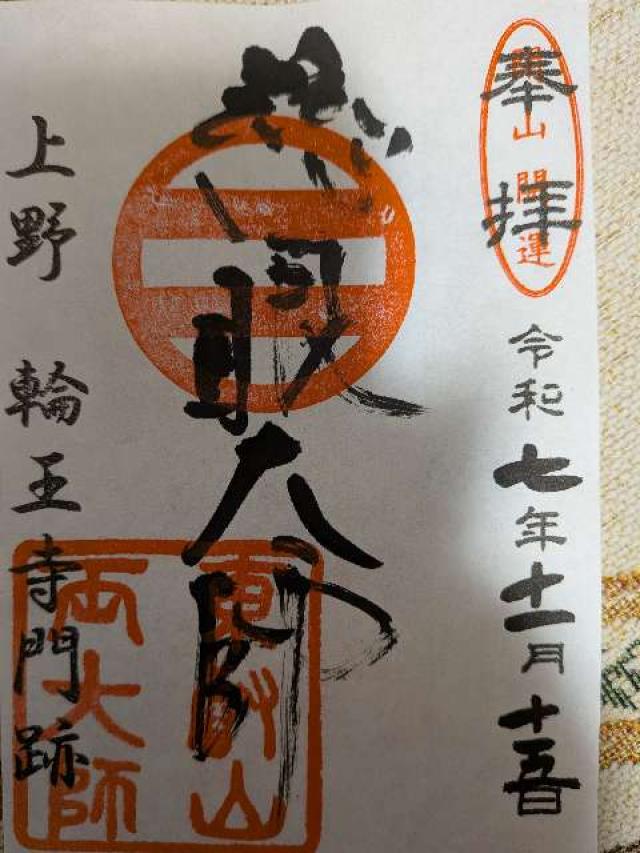 奉拝
山開運
令和七年十一月十五日
慈眼大師
東叡山
両大師
上野 輪王寺門跡